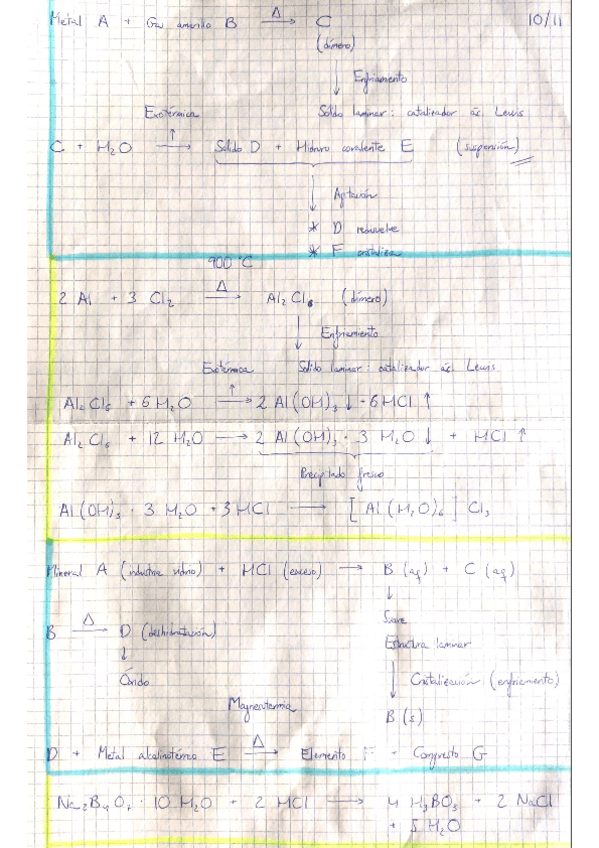 Metal A + Gas amarillo B —Δ→ C 10/11
(dímero)
↓ Enfriamiento
Exotérmica Sólido laminar: catalizador ác Lewis
C + H₂O ⟶ Sólido D + Hidruro covalente E (suspensión)
↓ Agitación
* D redisuelve
* F cristaliza
900 ºC
2 Al + 3 Cl₂ —Δ→ Al₂Cl₆ (dímero)
↓ Enfriamiento
Exotérmica Sólido laminar: catalizador ác Lewis
Al₂Cl₆ + 6 H₂O ⟶ 2 Al(OH)₃ ↓ + 6 HCl ↑
Al₂Cl₆ + 12 H₂O ⟶ 2 Al(OH)₃ · 3 H₂O ↓ + HCl ↑
Precipitado fresco
Al(OH)₃ · 3 H₂O + 3 HCl ⟶ [Al(H₂O)₆] Cl₃
Mineral A (industria vidrio) + HCl (exceso) ⟶ B (aq) + C (aq)
↓
B —Δ→ D (deshidratación) Suave
↓ Estructura laminar
Óxido ↓ Cristalización (enfriamiento)
Magnesotermia B (s)
D + Metal alcalinotérreo E —Δ→ Elemento F + Compuesto G
Na₂B₄O₇ · 10 H₂O + 2 HCl ⟶ 4 H₃BO₃ + 2 NaCl
+ 5 H₂O